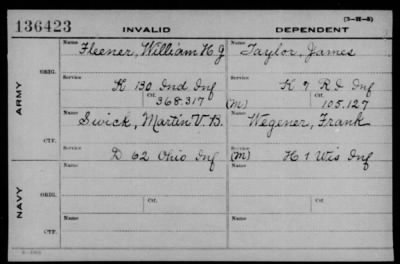 136423
INVALID
DEPENDENT
(3-H-5)
ARMY
ORIG.
Name
Fleener, William H. J
Name
Taylor, James
Service
K 130 Ind Inf
Service
K 7 R I Inf
Ctf.
368.317
(M)
Ctf.
105.127
CTF.
Name
Swick, Martin V. B.
Name
Wegener, Frank
Service
D 62 Ohio Inf
Service
(M)
H 1 Wis Inf
NAVY
ORIG.
Name
Name
Service
Ctf.
Service
Ctf.
CTF.
Name
Name
Service
Service